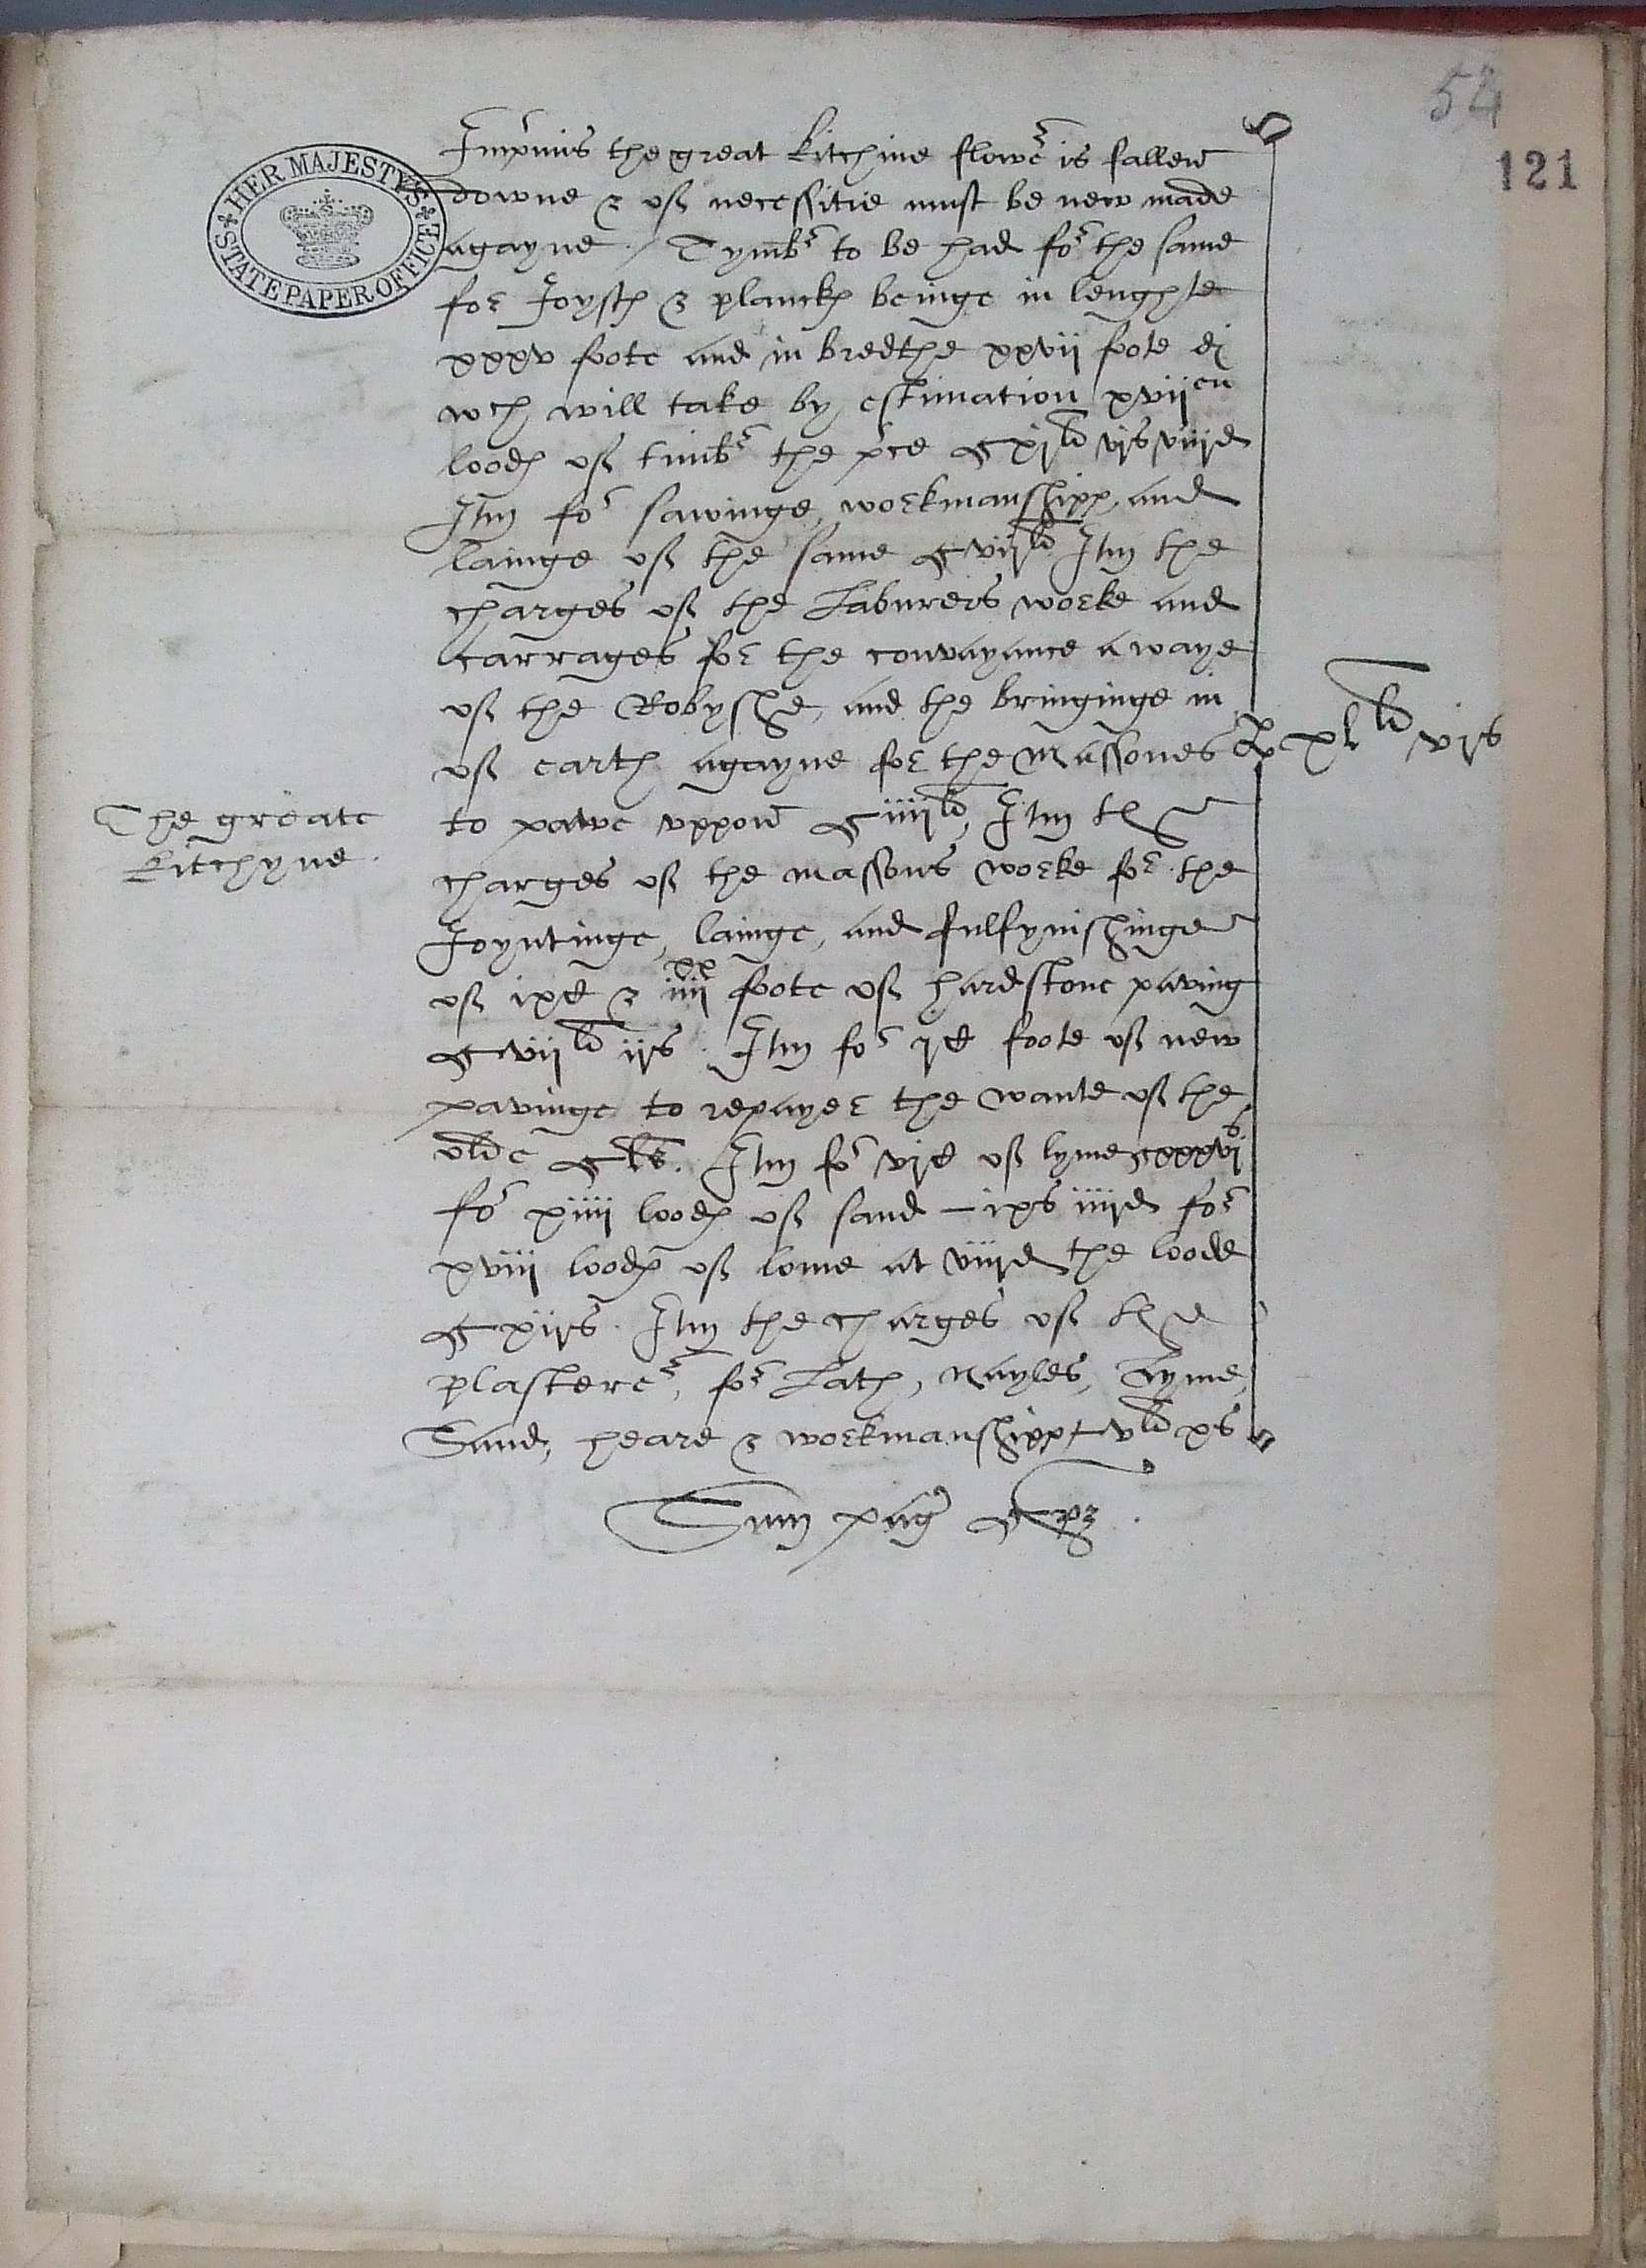 54
121
HER MAJESTYS
STATE PAPER OFFICE
Imprimis the great kitchine flower is fallen
downe & of necessitie must be new made
agayne / Tymber to be had for the same
for Joystes & planckes beinge in lenghte
xxxv foote and in bredthe xxvii foote di
wch will take by estimation xviien
loodes of timber the price xjli vjs viijd
Itm for sawinge, workmanshipp, and
lainge of the same vijli Itm the
charges of the Laburers worke and
carrages for the convayance awaye
of the Robyshe, and the bringinge in
of earth agayne for the Massones
xlli vjs
The greate
kitchyne
to pave uppon iiijli, Itm the
charges of the massons worke for the
Joyntinge, lainge, and fulfynishinge
of ixc & iiijxx foote of hardstone paving
vijli ijs. Itm for jc foote of new
pavinge to repayer the wante of the
olde ls. Itm for vjc of lyme xxxvjs
for xiiij loodes of sand - ixs iiijd for
xviij loodes of lome at viijd the loode
xijs. Itm the charges of the
plasterer, for Lath, nayles, Lyme,
Sand, heare & workmanshipp vli xs
Sum pag